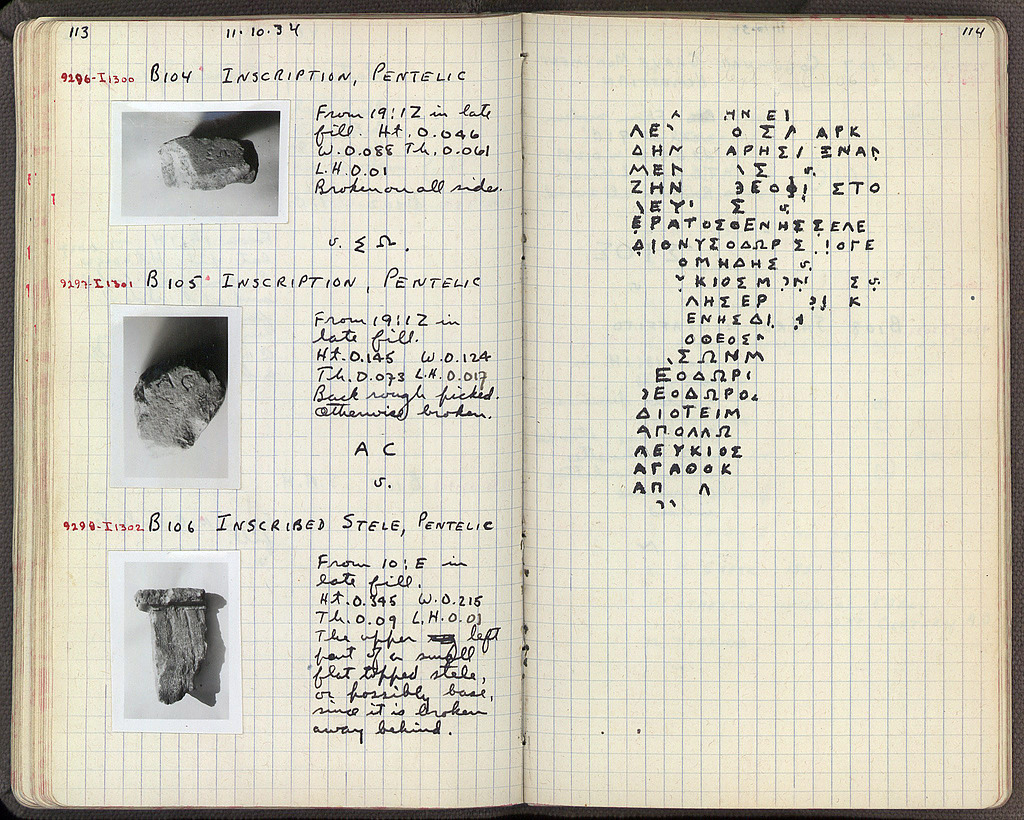 113
11·10·34
9296-I1300 B104 INSCRIPTION, PENTELIC
From 19:IZ in late
fill. Ht. 0.046
W. 0.088 Th. 0.061
L.H. 0.01
Broken on all sides.
v. Σ Ω.
9297-I1301 B105 INSCRIPTION, PENTELIC
From 19:IZ in
late fill.
Ht. 0.145 W. 0.124
Th. 0.073 L.H. 0.017
Back rough picked.
Otherwise broken.
A C
v.
9298-I1302 B106 INSCRIBED STELE, PENTELIC
From 10:E in
late fill.
Ht. 0.345 W. 0.215
Th. 0.09 L.H. 0.01
The upper left
part of a small
flat topped stele,
or possibly base,
since it is broken
away behind.
114
ΗΝ ΕΙ
ΛΕ Ο Σ Λ ΑΡΚ
ΔΗΝ ΑΡΗΣΙ ΞΝΑ
ΜΕΝ Σ v.
ΖΗΝ ΘΕΟΦΙ ΣΤΟ
ΛΕΥ Σ v.
ΕΡΑΤΟΣΘΕΝΗΣΣΕΛΕ
ΔΙΟΝΥΣΟΔΩΡ Σ ΙΟΓΕ
ΟΜΗΔΗΣ v.
ΚΙΟΣΜ Σ v.
ΛΗΣΕΡ Κ
ΕΝΗΣΔΙ
ΟΘΕΟΣ
ΣΩΝΜ
ΕΟΔΩΡΙ
ΕΟΔΩΡΟ
ΔΙΟΤΕΙΜ
ΑΠΟΛΛΩ
ΛΕΥΚΙΟΣ
ΑΓΑΘΟΚ
ΑΠ Λ